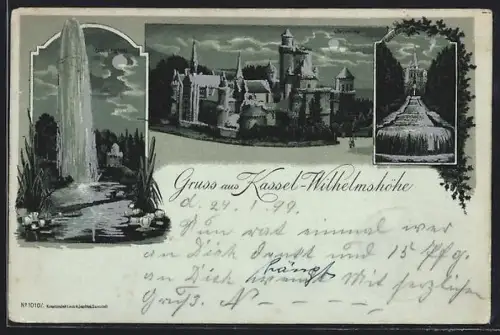 Gruss aus Kassel-Wilhelmshöhe
d. 24. 1. 99.
Nun wat einmal wer
an Dich denkt und 15 Pfg.
an Dich hängt Mit herzlichen
Gruß. N
No 1010/.